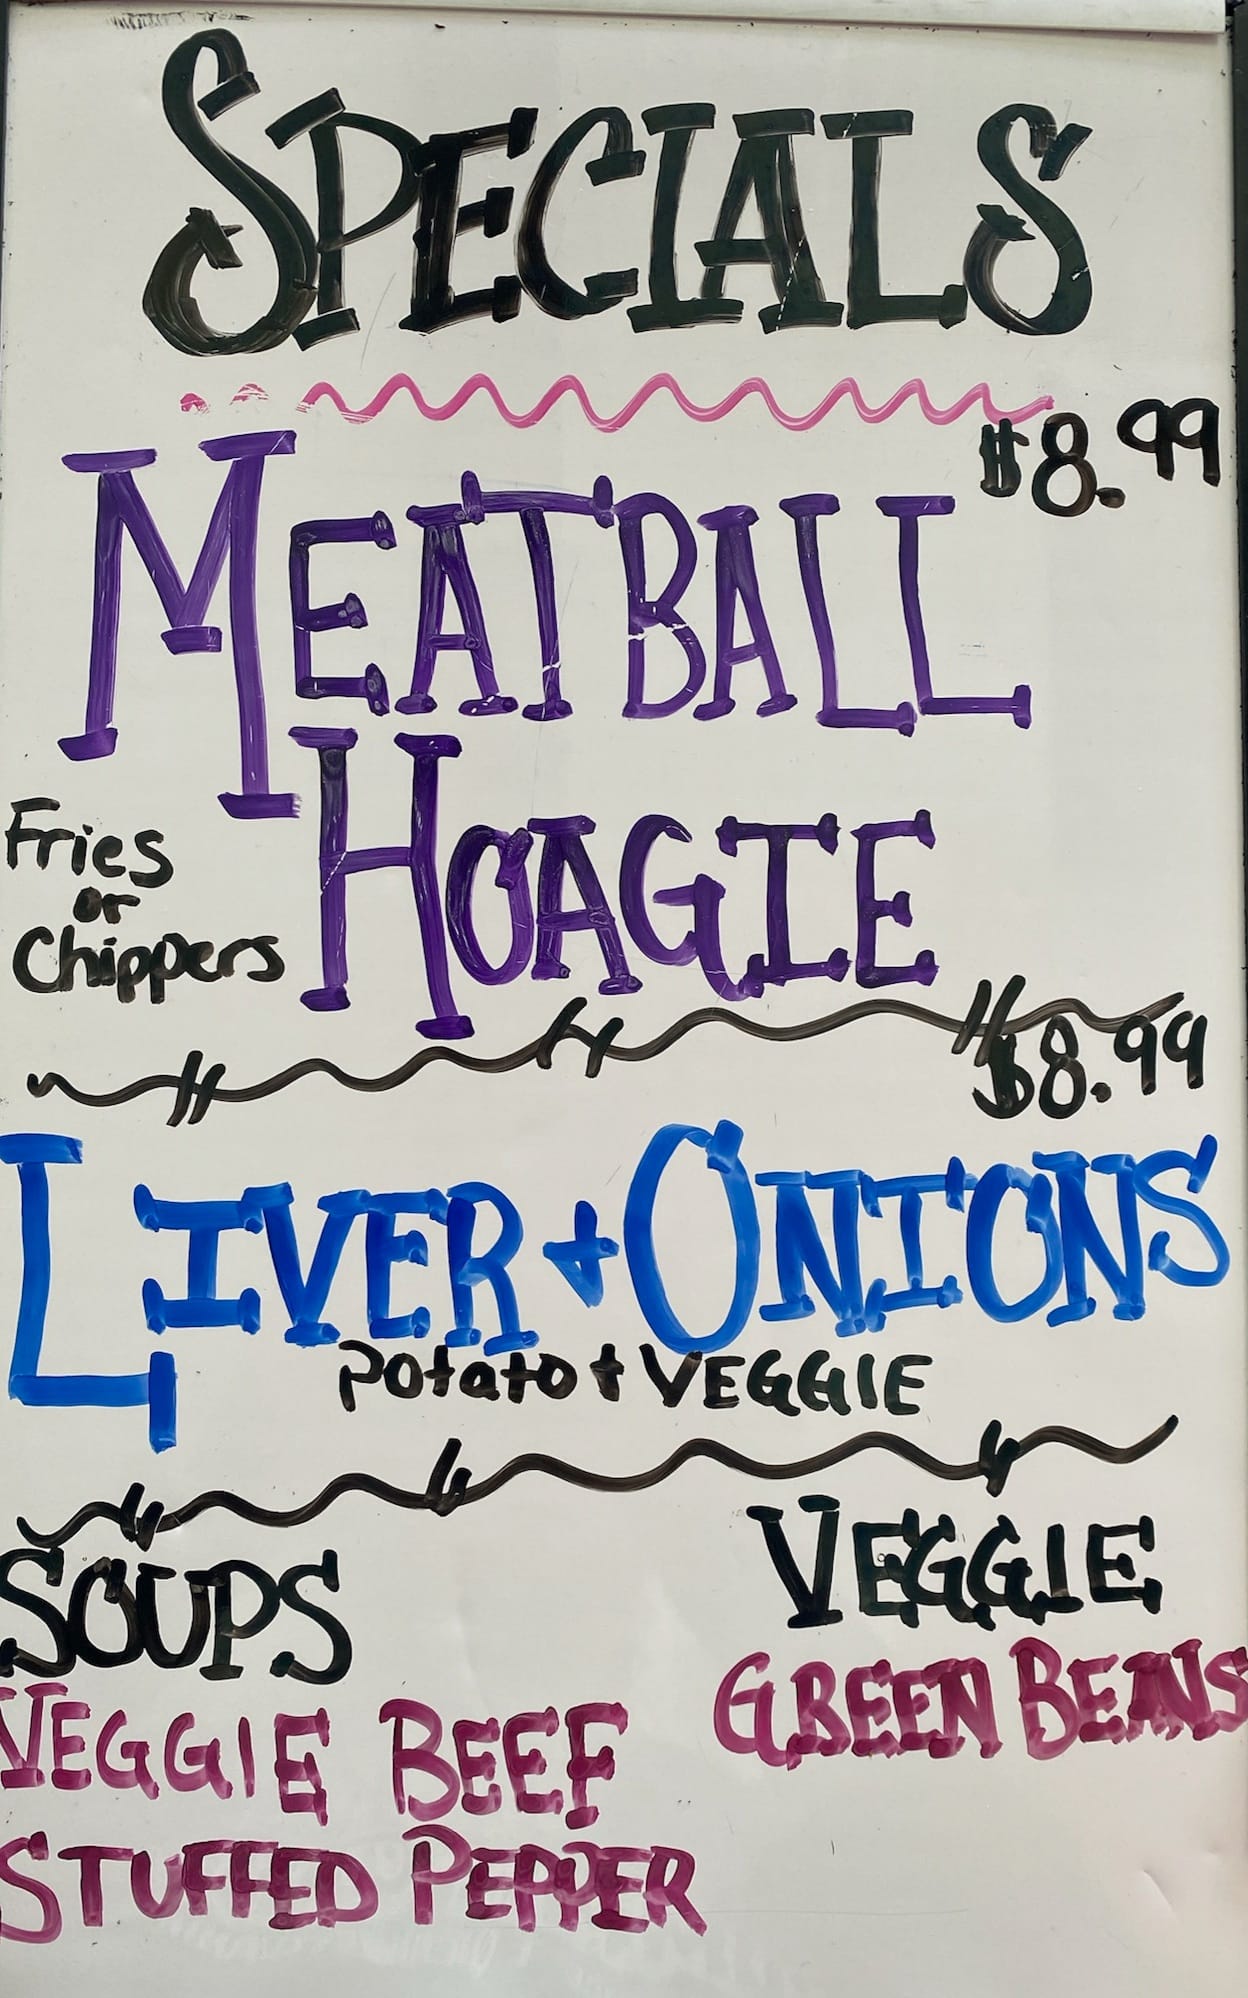 SPECIALS
$8.99
MEATBALL
HOAGIE
Fries
or
Chippers
$8.99
LIVER + ONIONS
Potato + VEGGIE
SOUPS
VEGGIE BEEF
STUFFED PEPPER
VEGGIE
GREEN BEANS